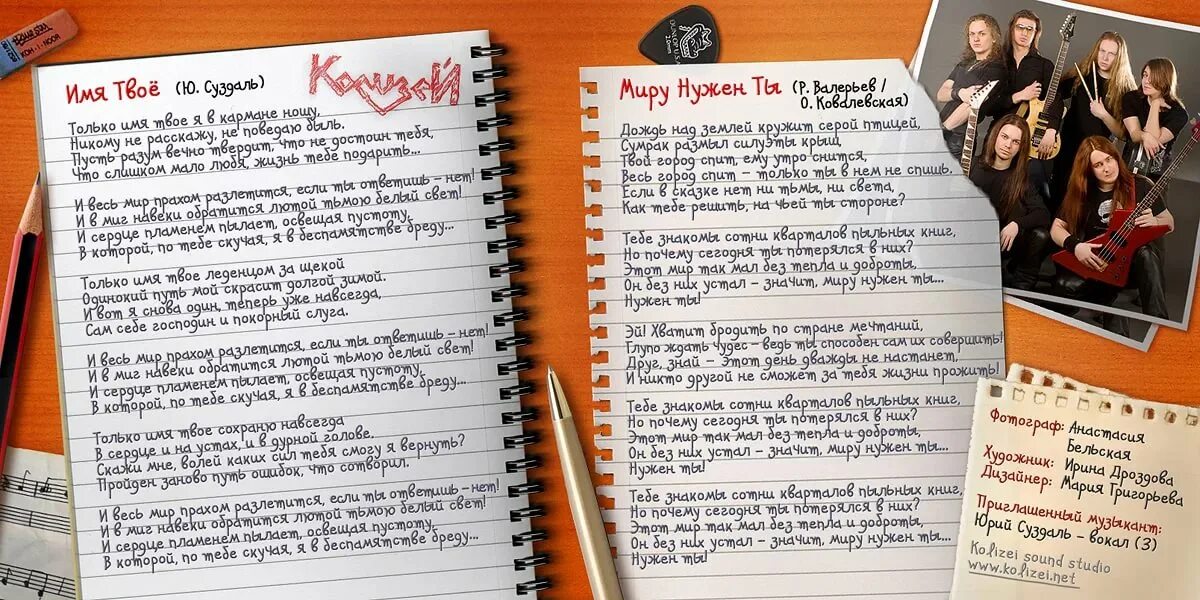 KOH-I-NOOR
Имя Твоё (Ю. Суздаль)
Колизей
Только имя твое я в кармане ношу,
Никому не расскажу, не поведаю быль.
Пусть разум вечно твердит, что не достоин тебя,
Что слишком мало любя, жизнь тебе подарить...
И весь мир прахом разлетится, если ты ответишь – нет!
И в миг навеки обратится лютой тьмою белый свет!
И сердце пламенем пылает, освещая пустоту,
В которой, по тебе скучая, я в беспамятстве бреду...
Только имя твое леденцом за щекой
Одинокий путь мой скрасит долгой зимой.
И вот я снова один, теперь уже навсегда,
Сам себе господин и покорный слуга.
И весь мир прахом разлетится, если ты ответишь – нет!
И в миг навеки обратится лютой тьмою белый свет!
И сердце пламенем пылает, освещая пустоту,
В которой, по тебе скучая, я в беспамятстве бреду...
Только имя твое сохраню навсегда
В сердце и на устах, и в дурной голове.
Скажи мне, волей каких сил тебя смогу я вернуть?
Пройден заново путь ошибок, что сотворил.
И весь мир прахом разлетится, если ты ответишь – нет!
И в миг навеки обратится лютой тьмою белый свет!
И сердце пламенем пылает, освещая пустоту,
В которой, по тебе скучая, я в беспамятстве бреду...
DUNLOP U.S.A.
2.0mm
Миру Нужен Ты (Р. Валерьев /
О. Ковалевская)
Дождь над землей кружит серой птицей,
Сумрак размыл силуэты крыш,
Твой город спит, ему утро снится,
Весь город спит – только ты в нем не спишь.
Если в сказке нет ни тьмы, ни света,
Как тебе решить, на чьей ты стороне?
Тебе знакомы сотни кварталов пыльных книг,
Но почему сегодня ты потерялся в них?
Этот мир так мал без тепла и доброты,
Он без них устал – значит, миру нужен ты...
Нужен ты!
Эй! Хватит бродить по стране мечтаний,
Глупо ждать чудес – ведь ты способен сам их совершить!
Друг, знай – этот день дважды не настанет,
И никто другой не сможет за тебя жизни прожить!
Тебе знакомы сотни кварталов пыльных книг,
Но почему сегодня ты потерялся в них?
Этот мир так мал без тепла и доброты,
Он без них устал – значит, миру нужен ты...
Нужен ты!
Тебе знакомы сотни кварталов пыльных книг,
Но почему сегодня ты потерялся в них?
Этот мир так мал без тепла и доброты,
Он без них устал – значит, миру нужен ты...
Нужен ты!
Фотограф: Анастасия
Бельская
Художник: Ирина Дроздова
Дизайнер: Мария Григорьева
Приглашенный музыкант:
Юрий Суздаль – вокал (3)
Ko.lizei sound studio
www.ko.lizei.net